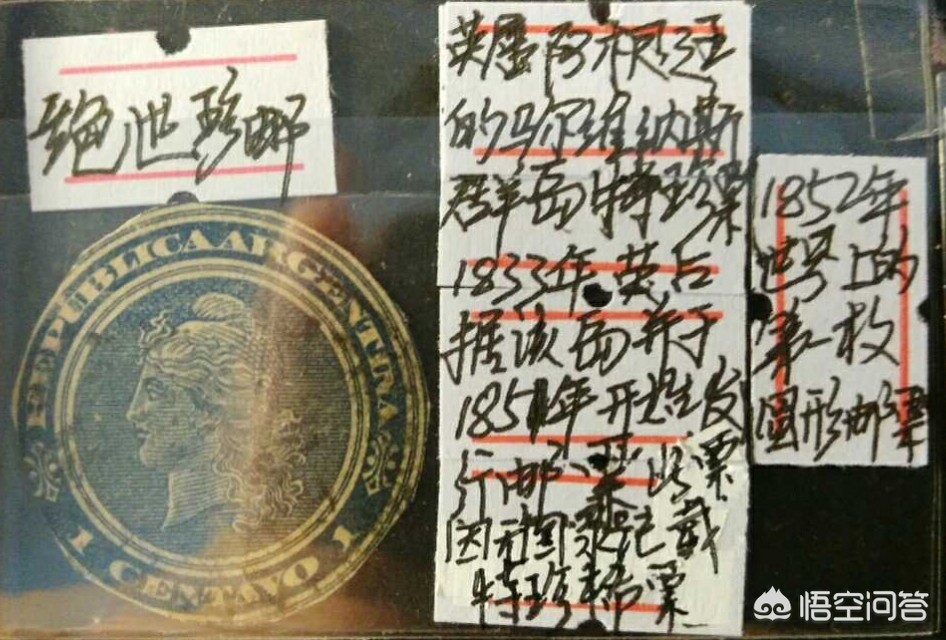 绝泄珍邮
REPÚBLICA ARGENTINA
1 CENTAVO 1
英属阿根廷
的马尔维纳斯
群岛特珍票
1833年英占
据该岛并于
1851年开始发
行邮票此票
因无国家记载
特珍稀票
1852年
世界上的
第一枚
圆形邮票
悟空问答